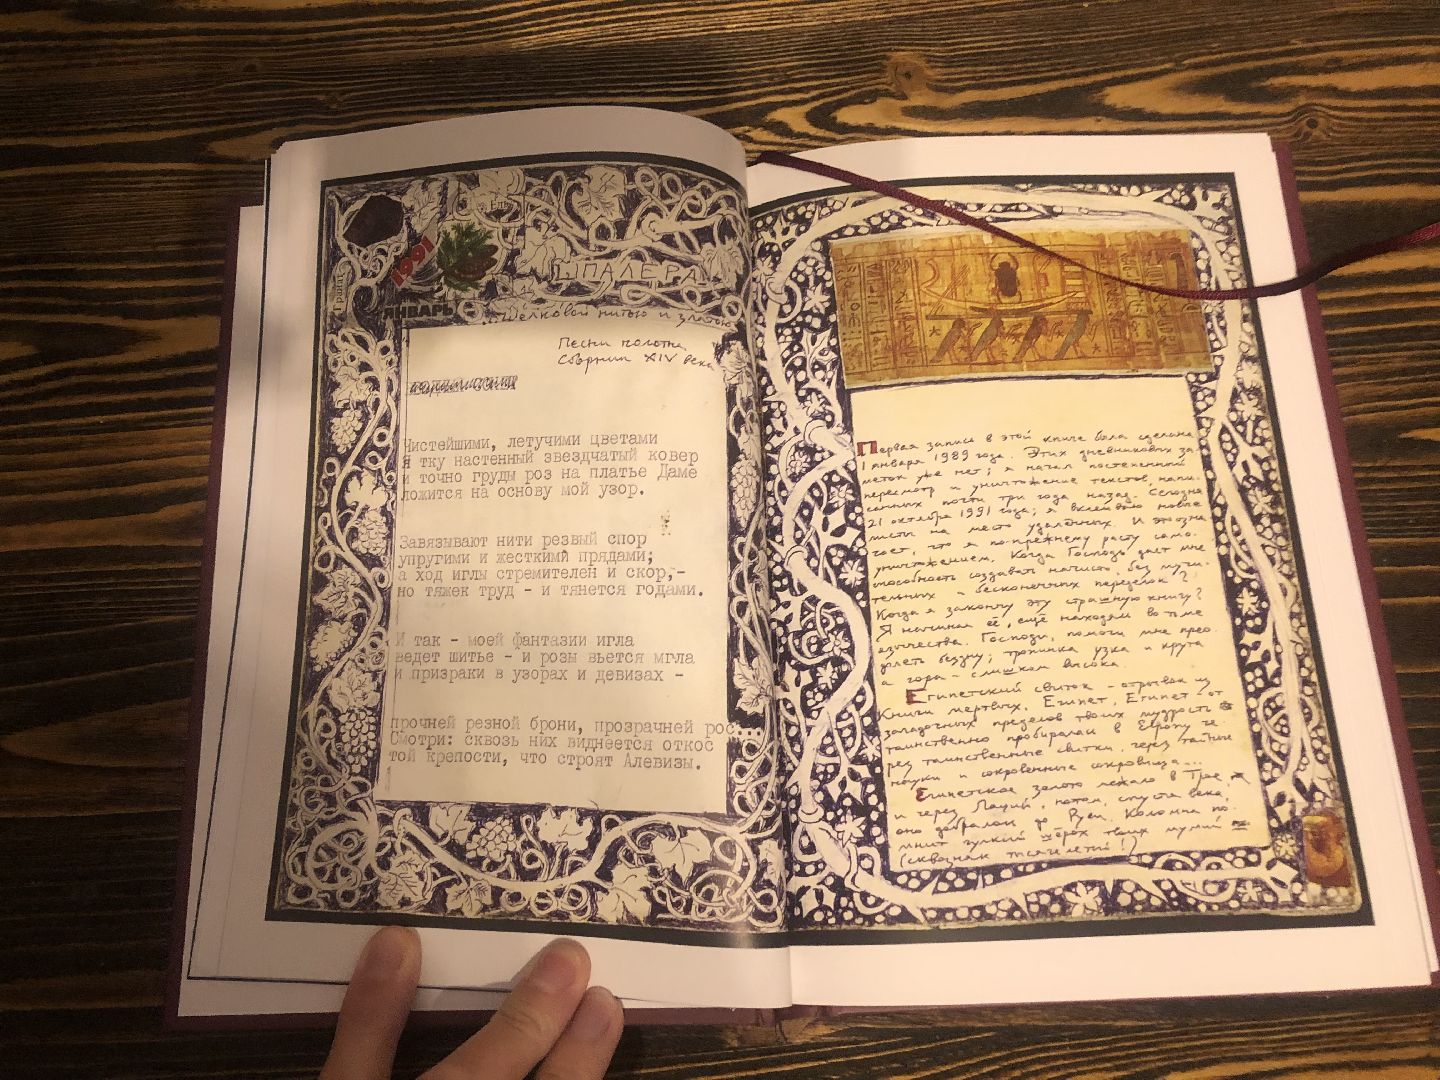 1991
ЯНВАРЬ
ШПАЛЕРА
...Шелковой нитью и златою
Песни полотна
Сборник XIV века
Чистейшими, летучими цветами
Я тку настенный звездчатый ковер
и точно груды роз на платье Даме
ложится на основу мой узор.
Завязывают нити резвый спор
упругими и жесткими прядами;
а ход иглы стремителен и скор,-
но тяжек труд - и тянется годами.
И так - моей фантазии игла
ведет шитье - и розы вьется мгла
и призраки в узорах и девизах -
прочней резной брони, прозрачней рос...
Смотри: сквозь них виднеется откос
той крепости, что строят Алевизы.
Первая запись в этой книге была сделана
1 января 1989 года. Этих дневниковых за-
меток уже нет; я начал постепенный
пересмотр и уничтожение текстов, напи-
санных почти три года назад. Сегодня
21 октября 1991 года; я вклеиваю новые
листы на место удалённых. И это зна-
чает, что я по-прежнему расту само-
уничтожением. Когда Господь даст мне
способность создавать начисто, без мучи-
тельных - бесконечных переделок?
Когда я закончу эту страшную книгу?
Я начинал её, ещё находясь во тьме
язычества. Господи, помоги мне прео-
долеть бездну; тропинка узка и крута
а гора - слишком высока.
Египетский свиток - отрывок из
Книги мертвых. Египет, Египет от
загадочных пределов твоих мудрость
таинственно пробиралась в Европу че-
рез таинственные свитки, через тайные
науки и сокровенные сокровища...
Египетское золото лежало в Трое
и через Лаций, потом, спустя века,
оно добралось до Руси. Коломна по-
мнит гулкий шорох твоих мумий
(сквозняк тысячелетий!)